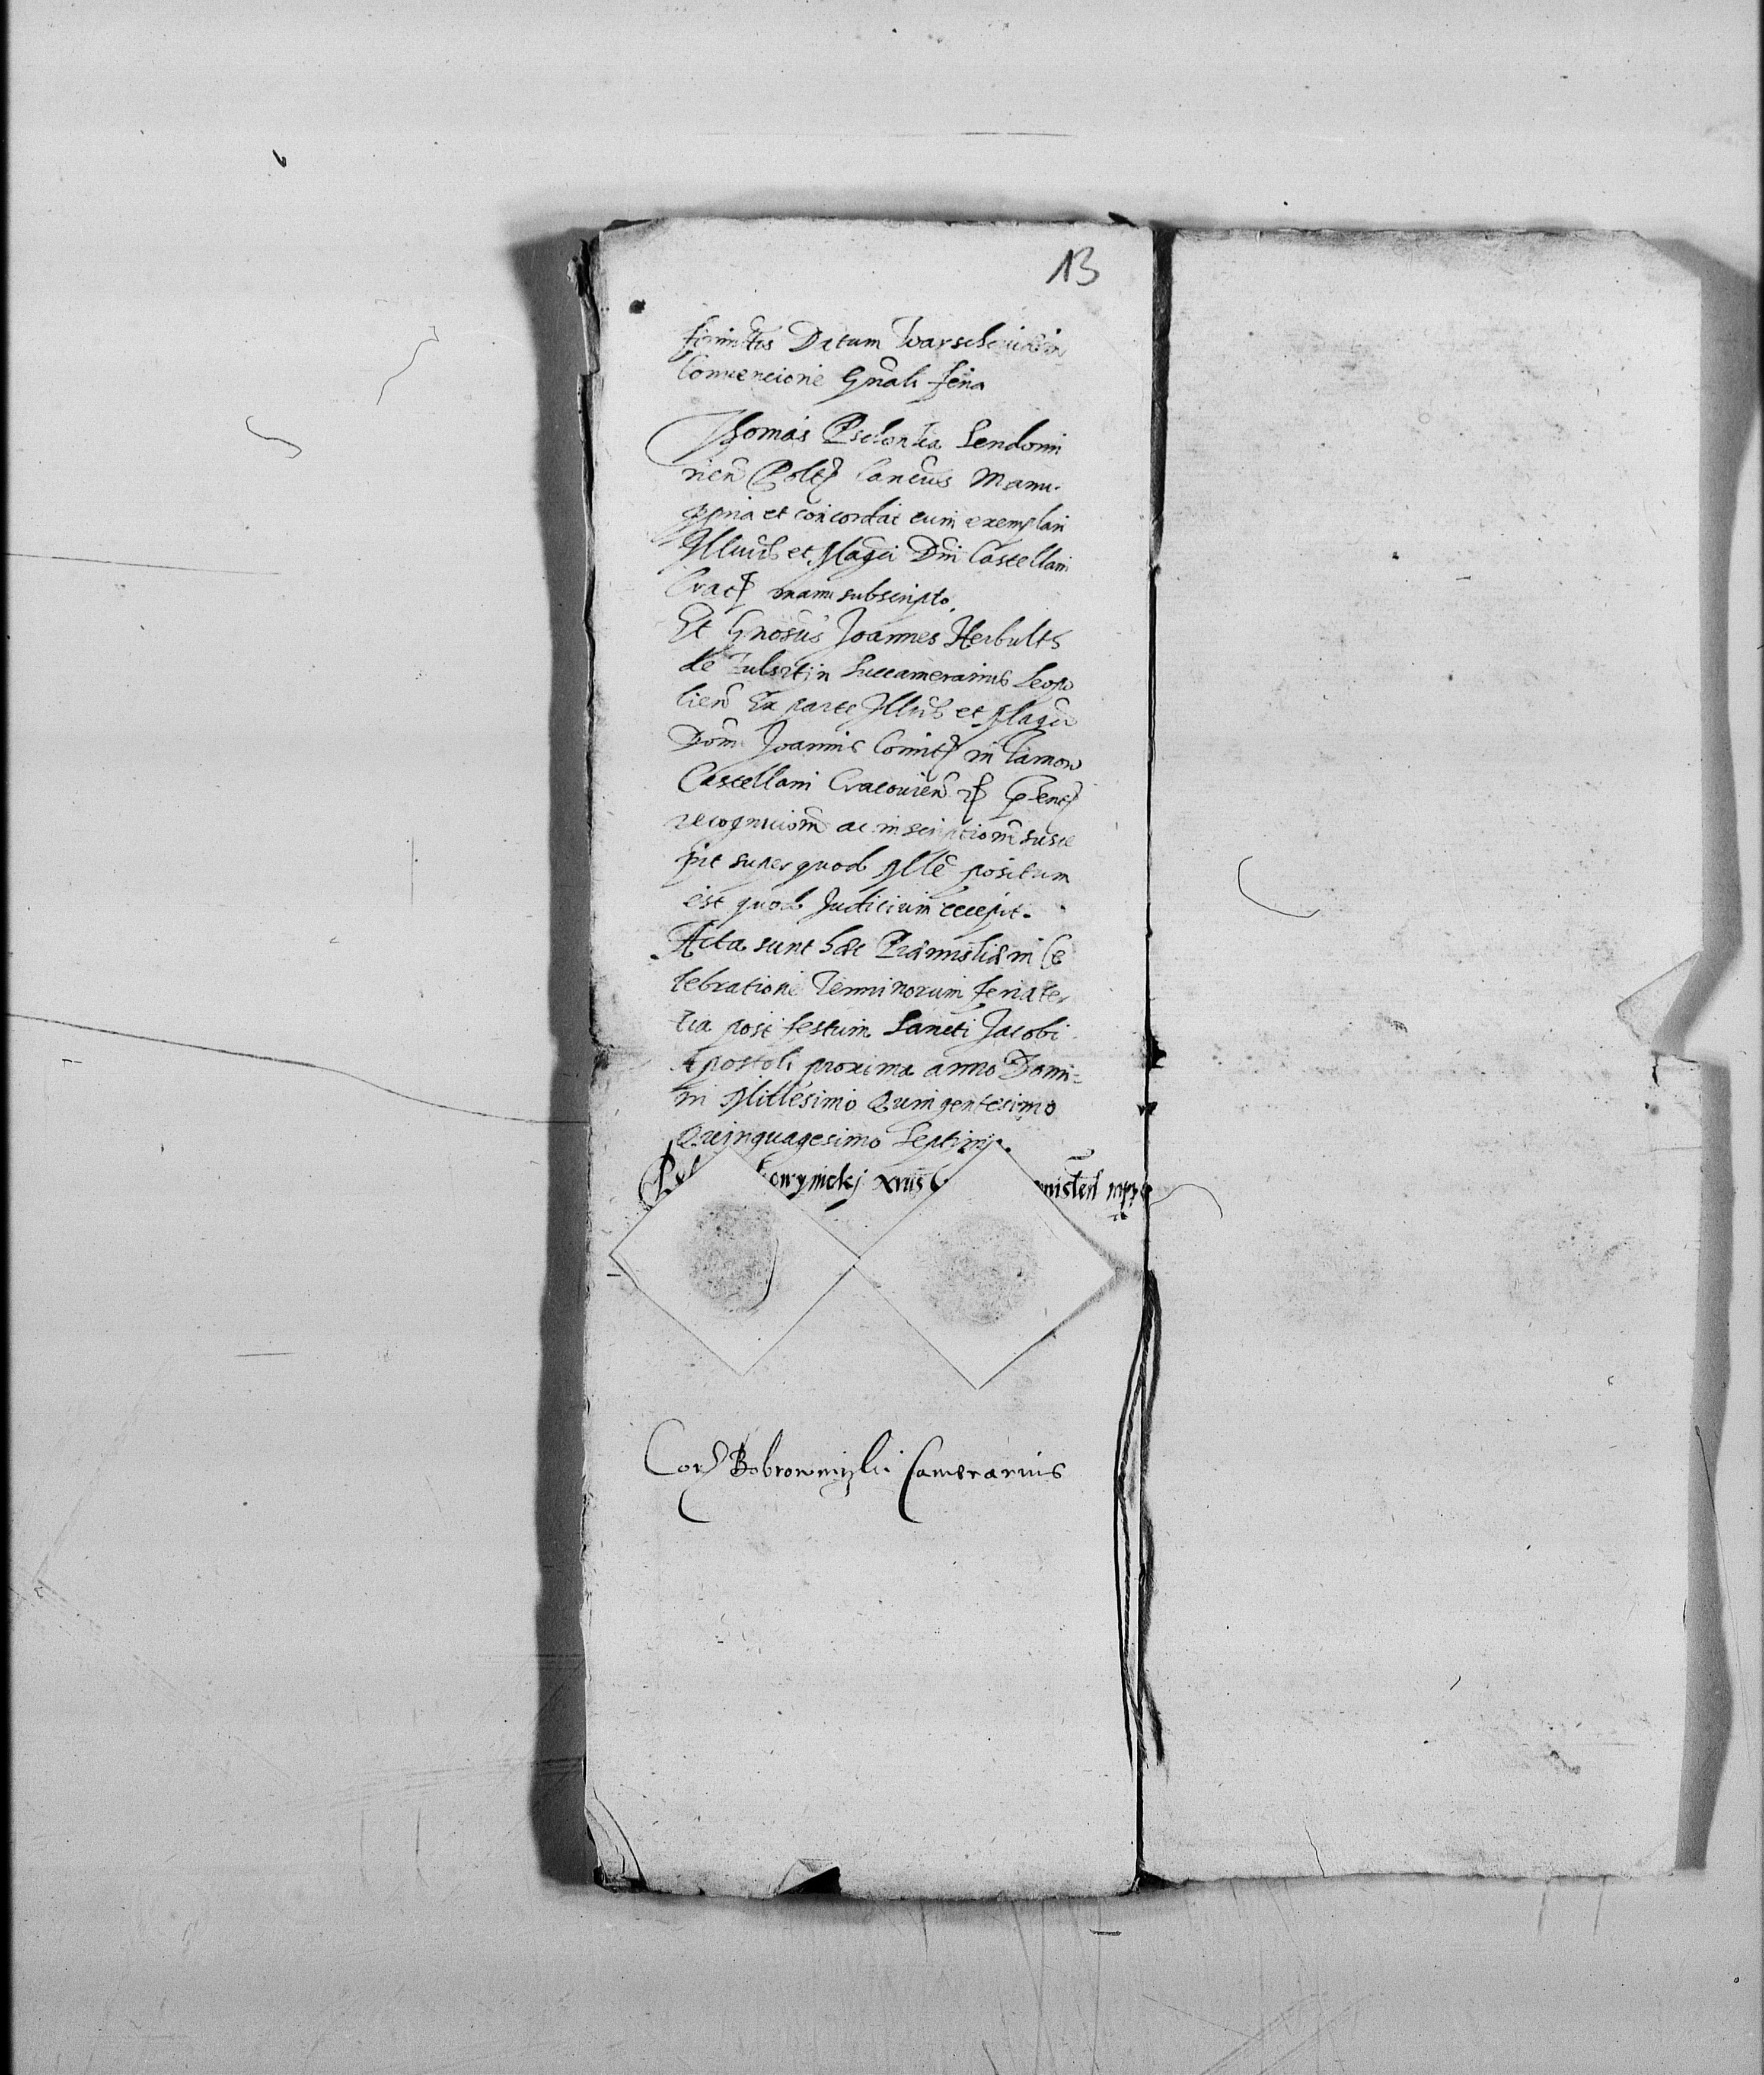 13
Datum Warscheuiæ in
Convencione Gnali feria
Thomas Pselontka Sendomi
rien
ppria et concordat cum exemplari
Illuis et Magci Dni Castellani
Crac manu subscripto.
Et Gnosus Joannes Herbulth
de Fulsztin Succamerarius Leopo
lien Ex parte Illuis et Magci
Dom Joannis Comit in Tarnow
Castellani Cracovien
recognicionem ac inscriptionem susce
pit super quod Ille positum
est quod Judicium recepit.
Acta sunt hæc Præmisliæ in Ce
lebratione Terminorum feria ter
tia post festum Sancti Jacobi
Apostoli proxima anno Domi=
ni Millesimo Quingentesimo
Quinquagesimo Septimo.
Cor Bobrownizki Camerarius